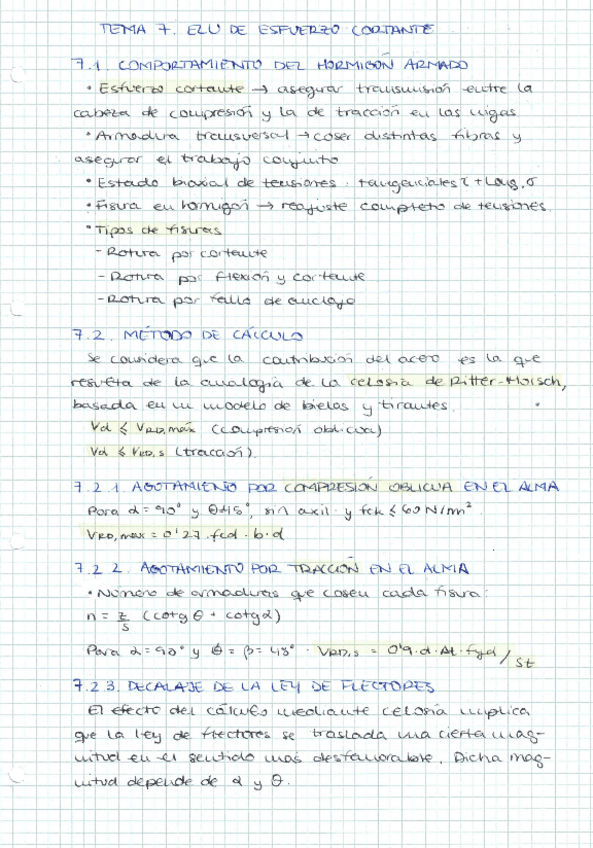 TEMA 7. ELU DE ESFUERZO CORTANTE
7.1. COMPORTAMIENTO DEL HORMIGÓN ARMADO
• Esfuerzo cortante → asegurar transmisión entre la
cabeza de compresión y la de tracción en las vigas
• Armadura transversal → coser distintas fibras y
asegurar el trabajo conjunto
• Estado biaxial de tensiones: tangenciales τ + Long. σ
• Fisura en hormigón → reajuste completo de tensiones.
• Tipos de fisuras
- Rotura por cortante
- Rotura por flexión y cortante
- Rotura por fallo de anclaje
7.2. MÉTODO DE CÁLCULO
Se considera que la contribución del acero es la que
resulta de la analogía de la celosía de Ritter-Mörsch,
basada en un modelo de bielas y tirantes.
Vd ≤ VRD,máx (compresión oblicua)
Vd ≤ VRD,s (tracción).
7.2.1. AGOTAMIENTO POR COMPRESIÓN OBLICUA EN EL ALMA
Para α = 90° y θ=45°, sin axil y fck ≤ 60 N/mm²
VRD,max = 0'27·fcd·b·d
7.2.2. AGOTAMIENTO POR TRACCIÓN EN EL ALMA
• Número de armaduras que cosen cada fisura:
n = z/s (cotg θ + cotg α)
Para α = 90° y θ = β = 45° · VRD,s = 0'9·d·At·fyd/st
7.2.3. DECALAJE DE LA LEY DE FLECTORES
El efecto del cálculo mediante celosía implica
que la ley de flectores se traslada una cierta mag-
nitud en el sentido más desfavorable. Dicha mag-
nitud depende de α y θ.